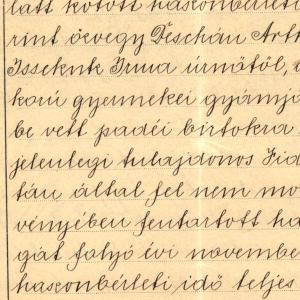 latt kötött haszonbérleti
rint özvegy Deschán Art
Issekutz Irma úrnőtől,
korú gyermekei gyámja
be vett padéi birtokra
jelenlegi tulajdonos Fid
tán által fel nem mo
vényében fentartott ha
gát folyó évi novembe
haszonbérleti idő teljes